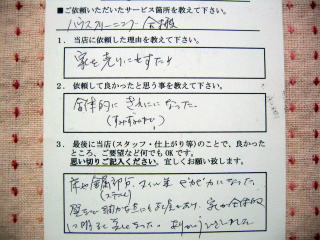 ■ご依頼いただいたサービス箇所を教えて下さい。
ハウスクリーニング 全般
1. 当店に依頼した理由を教えて下さい。
家を売りに出すため
2. 依頼して良かったと思う事を教えて下さい。
全体的にきれいになった。
(すみずみまで)
3. 最後に当店(スタッフ・仕上がり等)のことで、良かった
ところ、ご要望など何でもOKです。
思い切りご記入ください。宜しくお願い致します。
床や金属部分、サッシ等 ピカピカになった。
(ステンレス)
家が全体的
に明るく ありがとうございました